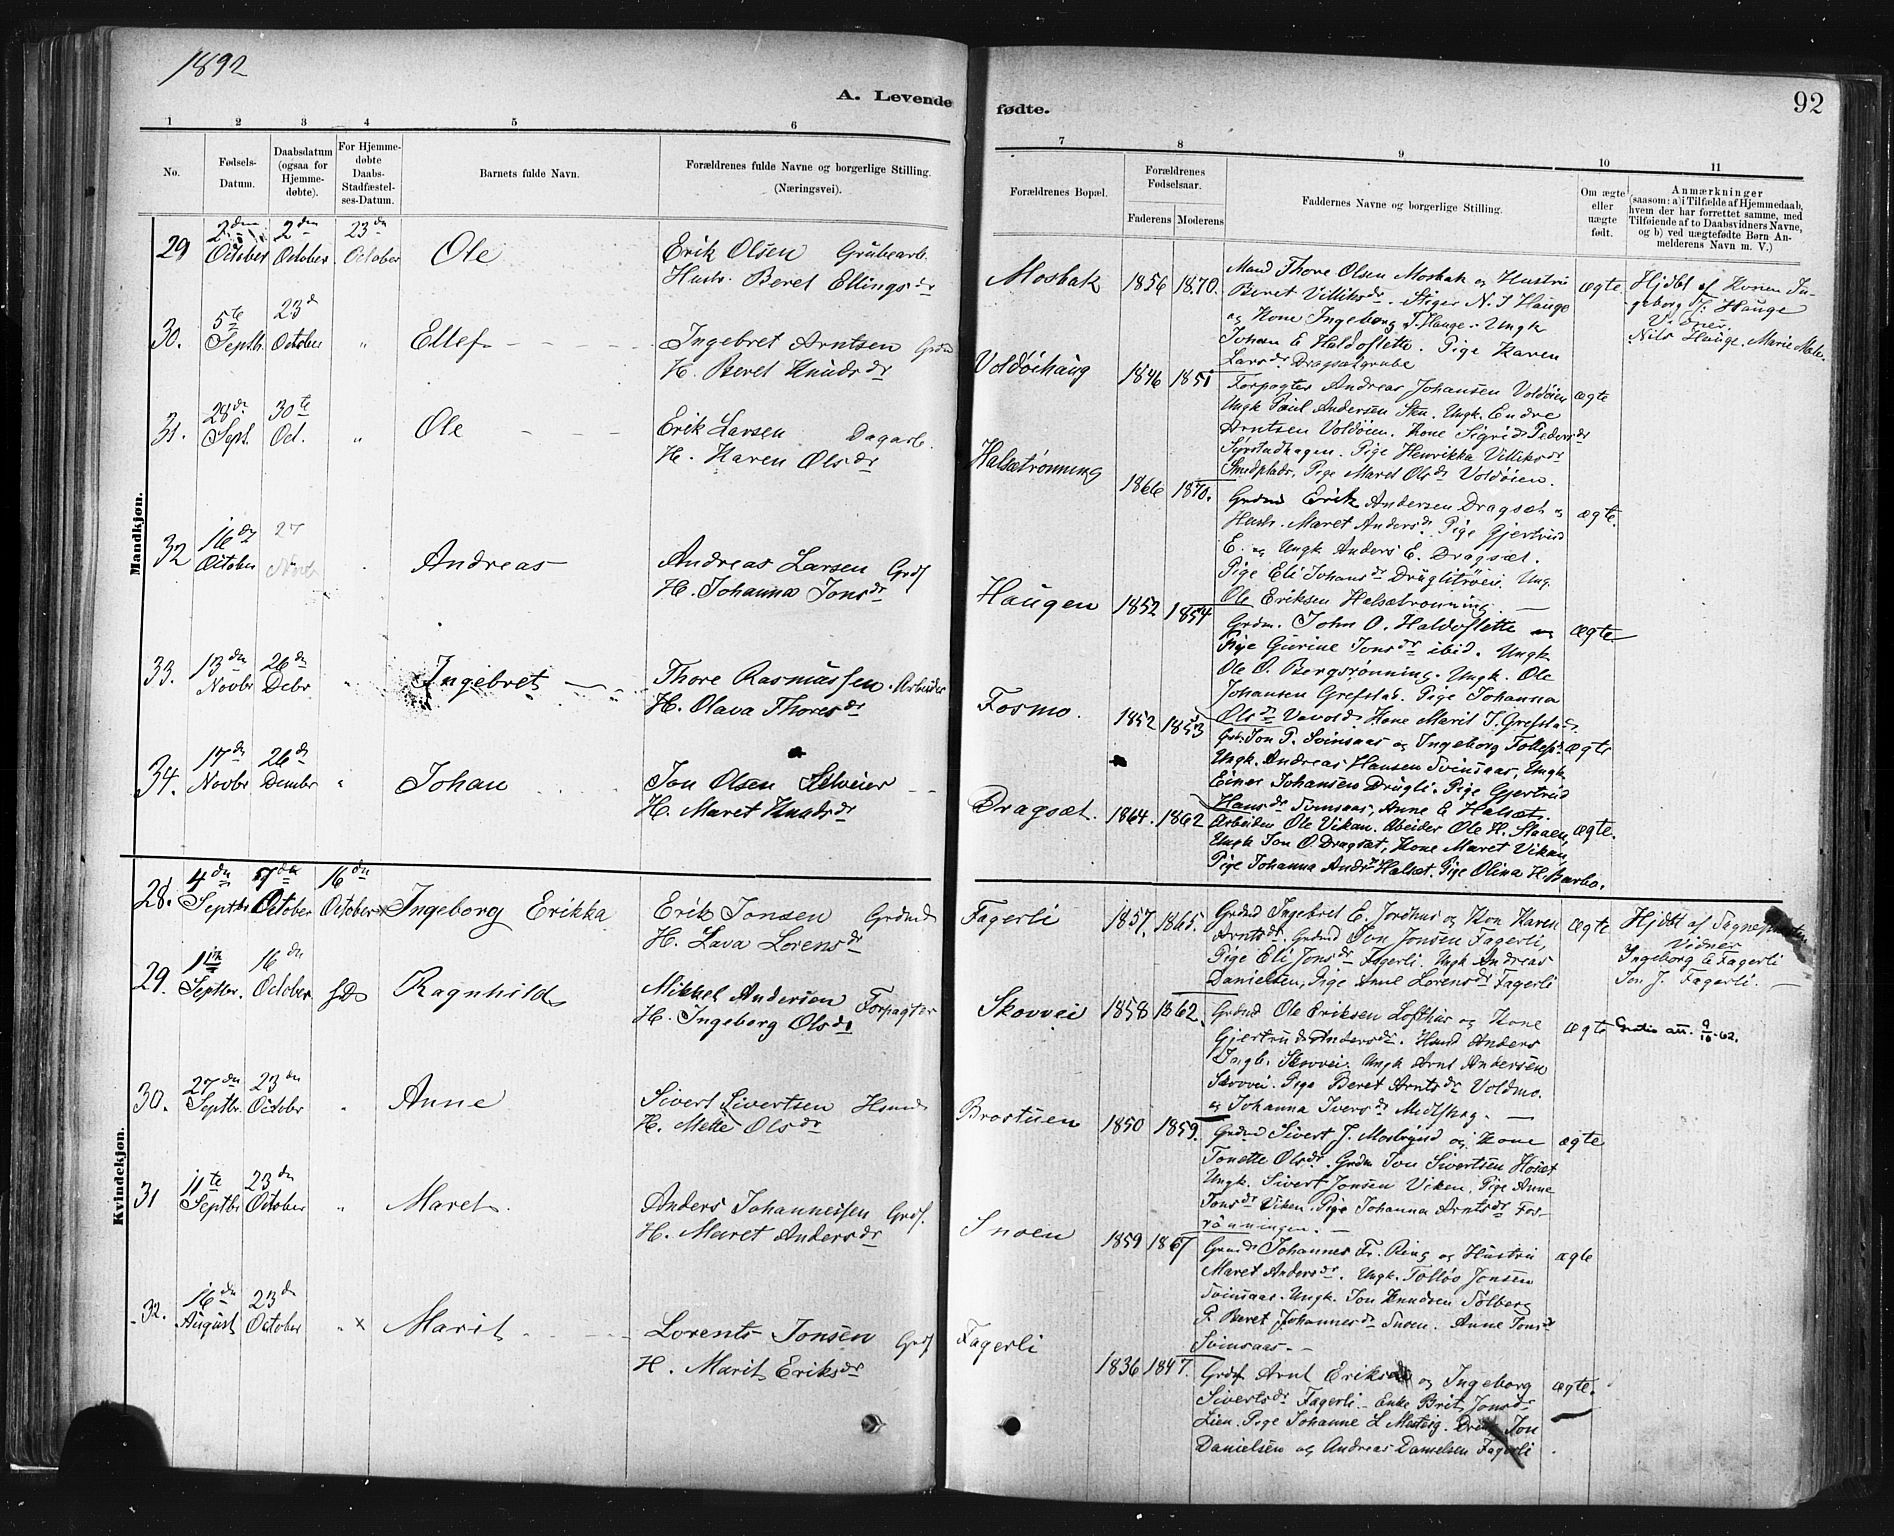 1892
92
A. Levende
fødte.
1 2 3 4 5 6
7 8 9 10 11
No.
Fødsels-
Datum.
Daabsdatum
(ogsaa for
Hjemme-
døbte).
For Hjemme-
døbte
Daabs-
Stadfæstel-
ses-Datum.
Barnets fulde Navn.
Forældrenes fulde Navne og borgerlige Stilling.
(Næringsvei).
Forældrenes Bopæl.
Forældrenes
Fødselsaar.
Faderens Moderens
Faddernes Navne og borgerlige Stilling.
Om ægte
eller
uægte
født.
Anmærkninger
(saasom: a) i Tilfælde af Hjemmedaab,
hvem der har forrettet samme, med
Tilføiende af to Daabsvidners Navne,
og b) ved uægtefødte Børn An-
melderens Navn m. V.)
Mandkjøn.
29 2den October 2den October 23dn October Ole
Erik Olsen Grubearb.
Hustr. Beret Ellingsdr
Mosbak 1856 1870.
Mand Thore Olsen Mosbak og Hustru
Beret Villiksdr. Stiger N. J Hauge
og Kone Ingeborg F. Hauge. Ungk
Johan E Haldoslette. Pige Karen
Larsdr Dragsætgrube
ægte
Hjdbt af Konen In-
geborg F. Hauge
Vidner.
Nils Hauge. Marie
30. 5te Septb. 23d October " Ellef
Ingebret Arntsen Grdm
H. Beret Knudsdr
Voldøihaug 1846 1851
Forpagter Andreas Johansen Voldøien
Ungk Paul Andersen Sten. Ungk. Endre
Arntsen Voldøien. Kone Sigrid Pedersdr
Syrstadhagen. Pige Henrikka Villiksdr
Smedplads, Pige Maret Olsdr Voldøien.
ægte
31. 28dn Sept. 30te Oct. " Ole
Erik Larsen Dagarb.
H. Karen Olsdr
Halsætrønning 1866 1870.
Grdmd Erik Andersen Dragsæt og
Hustr. Maret Andersdr. Pige Gjertrud
E. og Ungk Anders E. Dragsæt.
Pige Eli Johansdr Druglitrøen. Ung.
Ole Eriksen Halsætrønning.
ægte.
32 16dn October 27 Novb Andreas
Andreas Larsen Grdf
H. Johanna Jonsdr
Haugen 1852 1854
Grdm. John O. Haldoslette og
Pige Gurine Jonsdr ibid. Ungk
Ole O. Bergsrønning. Ungk. Ole
Johansen Grefstad. Pige Johanna
Olsdr Vavold. Kone Marit J. Grefstad.
ægte
33. 13dn Novbr 26dn Debr " Ingebret
Thore Rasmussen Arbeider
H. Olava Thoresdr
Fosmo. 1852 1853
Grdb. Jon P. Svinsaas og Ingeborg
Ungk. Andreas Hansen Svinsaas, Ungk
Einer Johansen Drugli. Pige Gjertrud
Hansdr Svinsaas, Anne E Halsæt.
ægte
34. 17dn Novbr 26d Dember " Johan
Jon Olsen Selveier
H. Maret Knudsdr
Dragsæt. 1864. 1862
Arbeider Ole Vikan. Abeider Ole H. Staaen,
Ungk Jon O. Dragsæt, Kone Maret Vikan,
Pige Johanna Andrdr Halsæt. Pige Olina H. Barbo.
ægte.
Kvindekjøn.
28. 4dn Septbr October 16dn October Ingeborg Erikka
Erik Jonsen Grdmd
H. Lava Lorensdr
Fagerli 1857. 1865.
Grdmd Ingebret E. Jordhus og Kon Karen
Arntsdr. Grdmd Jon Jonsen Fagerli,
Pige Eli Jonsdr Fagerli. Ungk Andreas
Danielsen, Pige Anne Lorensdr Fagerli
ægte
Hjdbt af Sognepresten
Vidner
Ingeborg E Fagerli
Jon J. Fagerli.
29. 11te Septbr. 16dn October Ragnhild
Mikkel Andersen Forpagter
H. Ingeborg Olsdr
Skovvei 1858 1862.
Grdmd Ole Eriksen Lofthus og Kone
Gjertrud Andersdr. Hsmd Anders
Ingb. Skovvei. Ungk Arnt Andersen
Skovvei. Pige Beret Arntsdr Voldmo.
og Johanna Iversdr Midtskog.
ægte Gratis att. 9/10-62.
30. 27dn Septbr. 23dn October " Anne
Sivert Sivertsen Hsmd
H. Mette Olsdr
Brostuen 1850 1859.
Grdmd Sivert J. Mosbrynd og Kone
Tonette Olsdr. Grdm Jon Sivertsen Hosæt
Ungk. Sivert Jonsen Viken, Pige Anne
Jonsdr Viken. Pige Johanna Arntsdr Fos-
rønningen.
ægte
31 11te Septbr 23dn October " Maret.
Anders Johannessen Grdf.
H. Maret Andersdr
Snoen 1859 1867
Grmd Johannes Fr. Ring og Hustru
Maret Andersdr. Ungk. Tollev Jonsen
Svinsaas. Ungk. Jon Knudsen Solberg
P. Beret Johannesdr Snoen. Anne Jonsdr
Svinsaas.
ægte
32. 16dn August 23dn October " x Marit
Lorents Jonsen Grdf
H. Marit Eriksdr
Fagerli 1836 1847.
Grdf Arnt Eriks og Ingeborg
Sivertsdr Fagerli. Enke Brit Jonsdr
Lien. Pige Johanne L. Jon
Danielsen og Andreas Danielsen Fagerli
ægte.